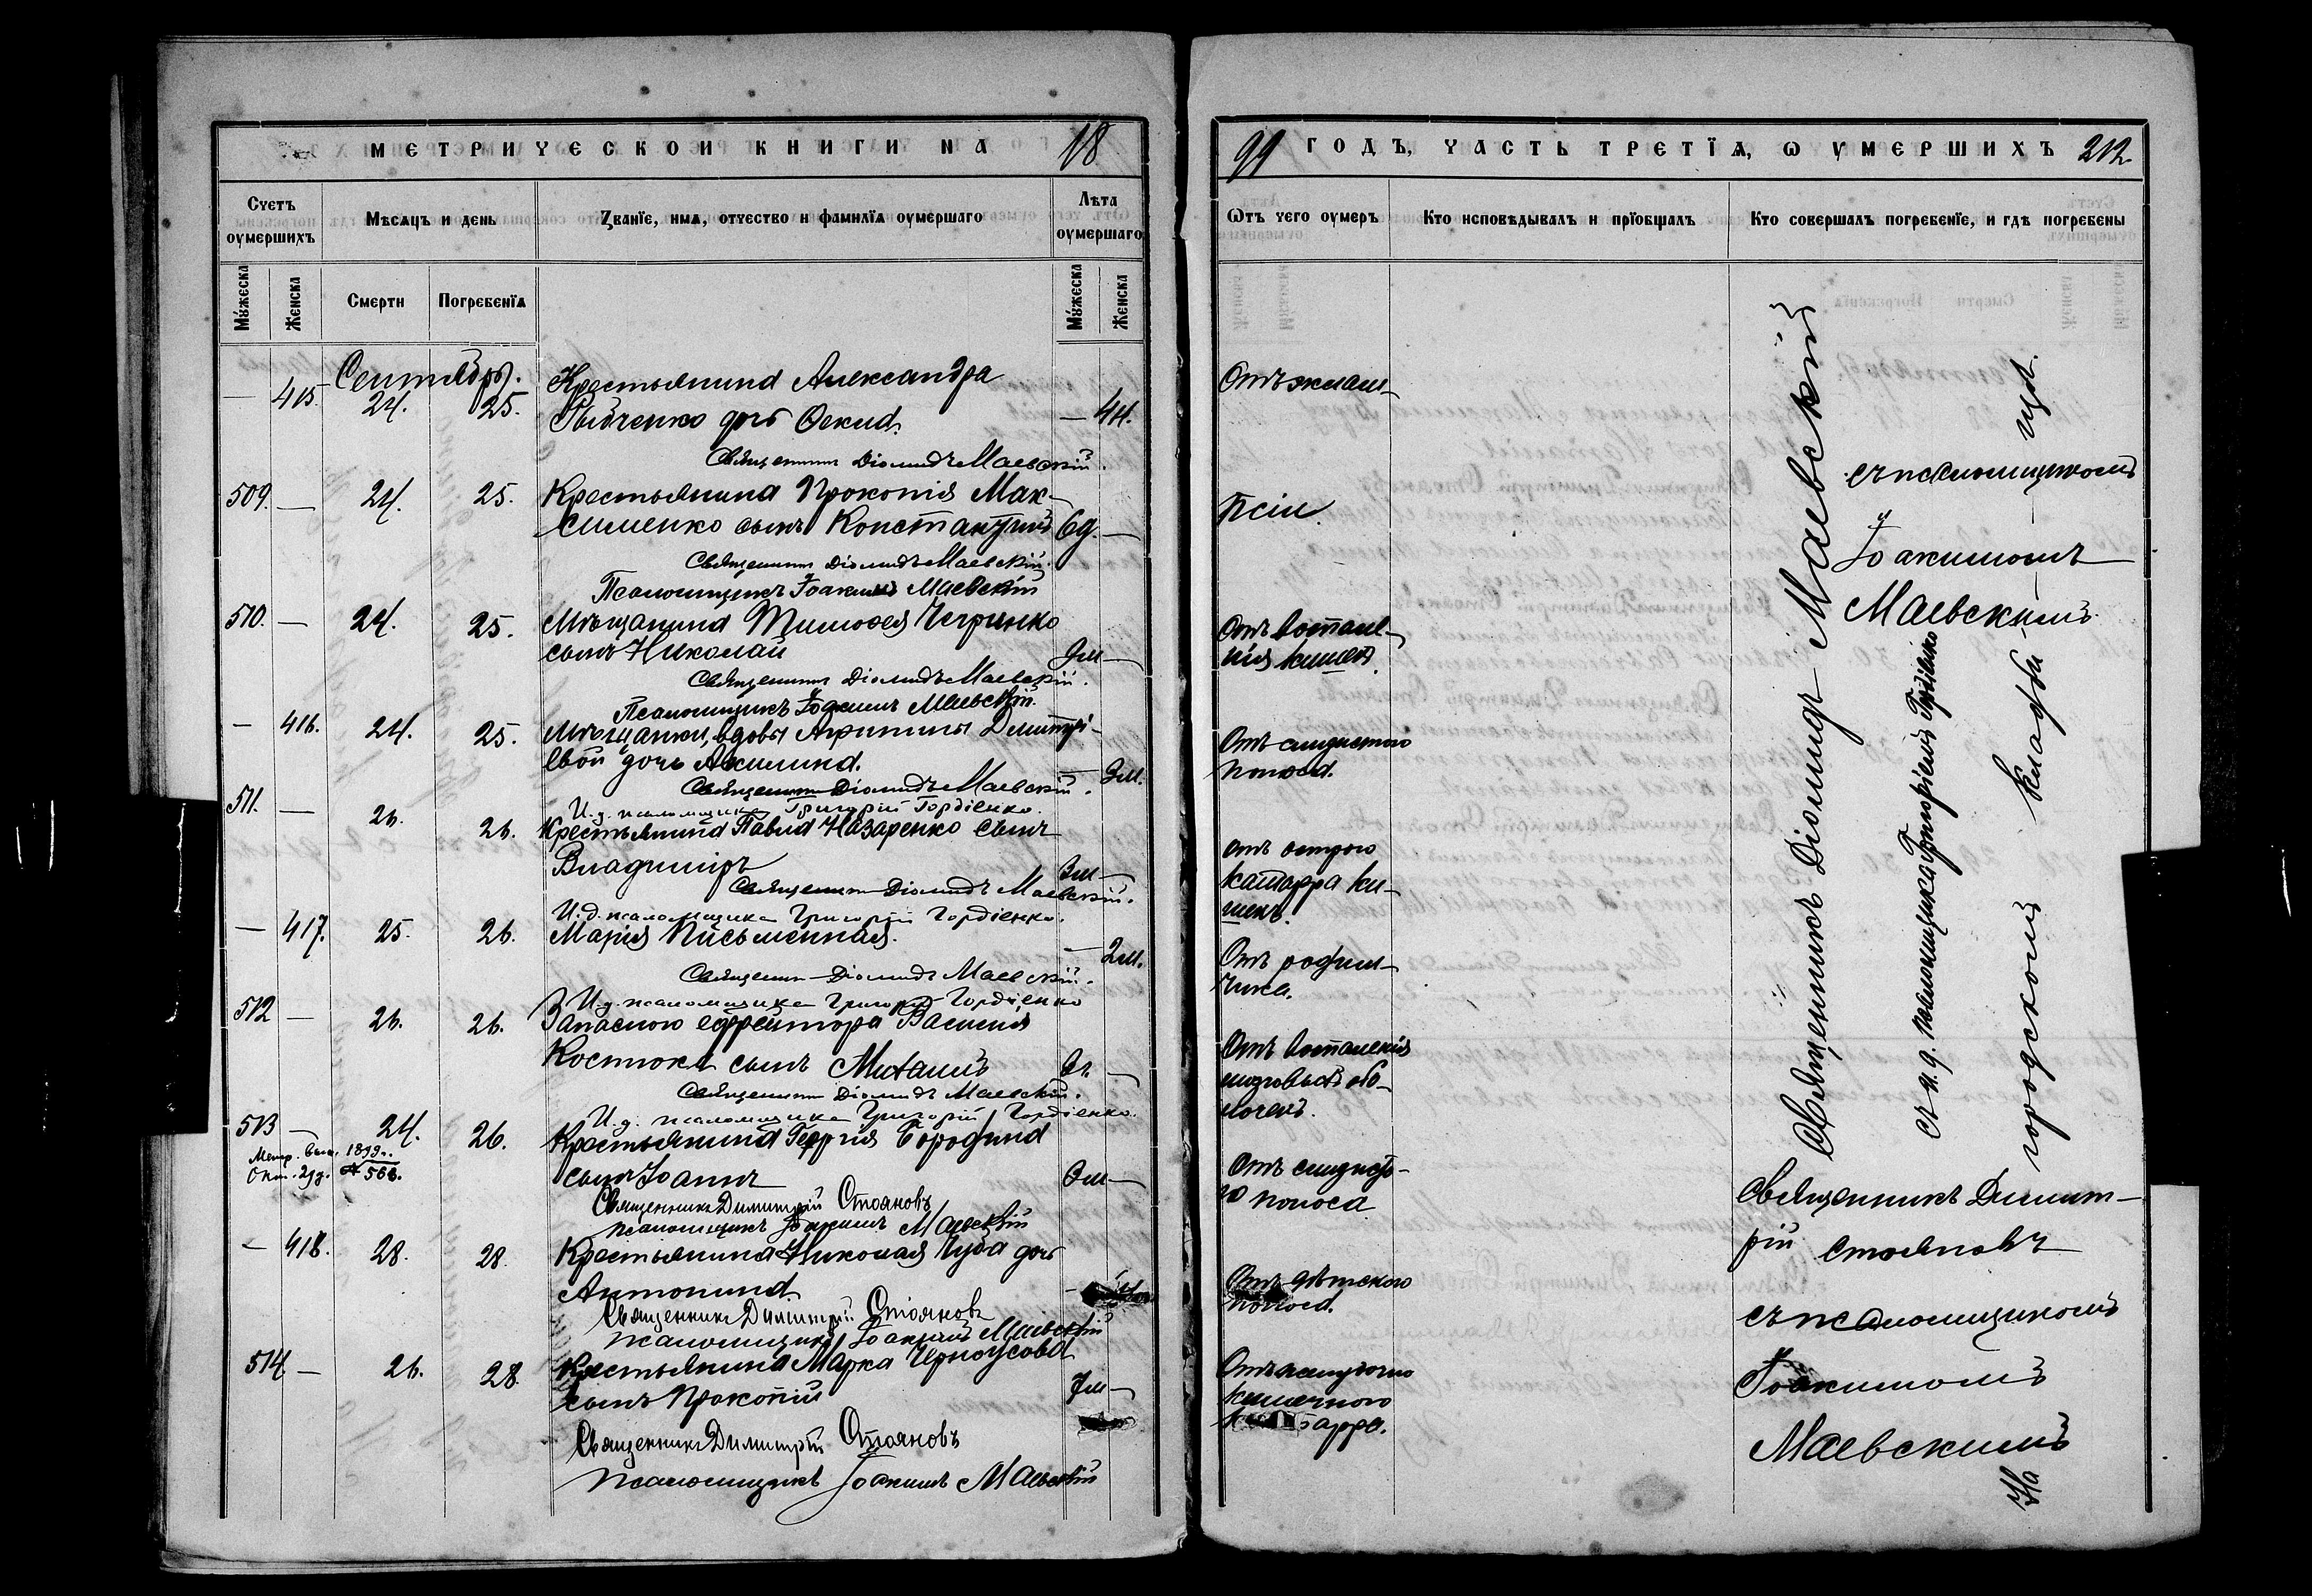 МЕТРИЧЕСКОЙ КНИГИ НА 18
Счетъ оумершихъ
Мѣсяцъ и день
Званїе, имя, отчество и фамилїя оумершаго
Лѣта оумершаго
Мужеска
Женска
Смерти
Погребенїя
Мужеска
Женска
Сентябрь.
— 415. 24. 25. Крестьянина Александра
дочь — 4м.
Священникъ Діомидъ Маевскій.
509. — 24. 25. Крестьянина Прокопія Мак-
сименко сынъ Константинъ 6д. —
Священникъ Діомидъ Маевскій.
Псаломщикъ Іоакимъ Маевскій
510. — 24. 25. Мѣщанина Тимофея
сынъ Николай 9м —
Священникъ Діомидъ Маевскій.
Псаломщикъ Іоакимъ Маевскій.
— 416. 24. 25. Мѣщанки, вдовы Агрипины Димитрі-
евой дочь Акилина. — 3м.
Священникъ Діомидъ Маевскій.
И.д. псаломщика Григорій Гордіенко.
511. — 26. 26. Крестьянина Павла Назаренко сынъ
Владиміръ 3м —
Священникъ Діомидъ Маевскій.
И.д. псаломщика Григорій Гордіенко.
— 417. 25. 26. Марія Письменная. — 2м.
Священникъ Діомидъ Маевскій.
И.д. псаломщика Григорій Гордіенко
512 — 26. 26. Запасного ефрейтора Василія
Костюка сынъ Михаилъ —
Священникъ Діомидъ Маевскій.
И.д. псаломщика Григорій Гордіенко.
513 — 24. 26. Крестьянина Георгія Бородина
Метр. вып. 1899г.
Окт. 29д. № 566.
сынъ Іоаннъ —
Священникъ Димитрій Стояновъ
псаломщикъ Іоакимъ Маевскій
— 418. 28. 28. Крестьянина Николая Чуба дочь
Антонина.
Священникъ Димитрій Стояновъ
псаломщикъ Іоакимъ Маевскій
514 — 26. 28. Крестьянина Марка Черноусова
сынъ Прокопій 7м —
Священникъ Димитрій Стояновъ
псаломщикъ Іоакимъ Маевскій
99 ГОДЪ, ЧАСТЬ ТРЕТЇЯ, Ѡ УМЕРШИХЪ 212.
Ѿтъ чего оумеръ
Кто исповѣдывалъ и прїобщалъ
Кто совершалъ погребенїе, и гдѣ погребены
Отъ воспале-
нія кишекъ.
Отъ слизистого
поноса.
Отъ острого
катарра ки-
шекъ.
Отъ родим-
чика.
Отъ воспаленія
мозговыхъ обо-
лочекъ.
Отъ слизисто-
го поноса
Отъ дѣтского
поноса.
Отъ желудочно
кишечного
Священникъ Діомидъ Маевскій
съ псаломщикомъ
Іоакимомъ
Маевскимъ.
съ и. д. псаломщика Григоріемъ Гордіенко
Священникъ Димит-
рій Стояновъ
съ псаломщикомъ
Іоакимомъ
Маевскимъ
На
городскомъ
кладби-
щѣ.